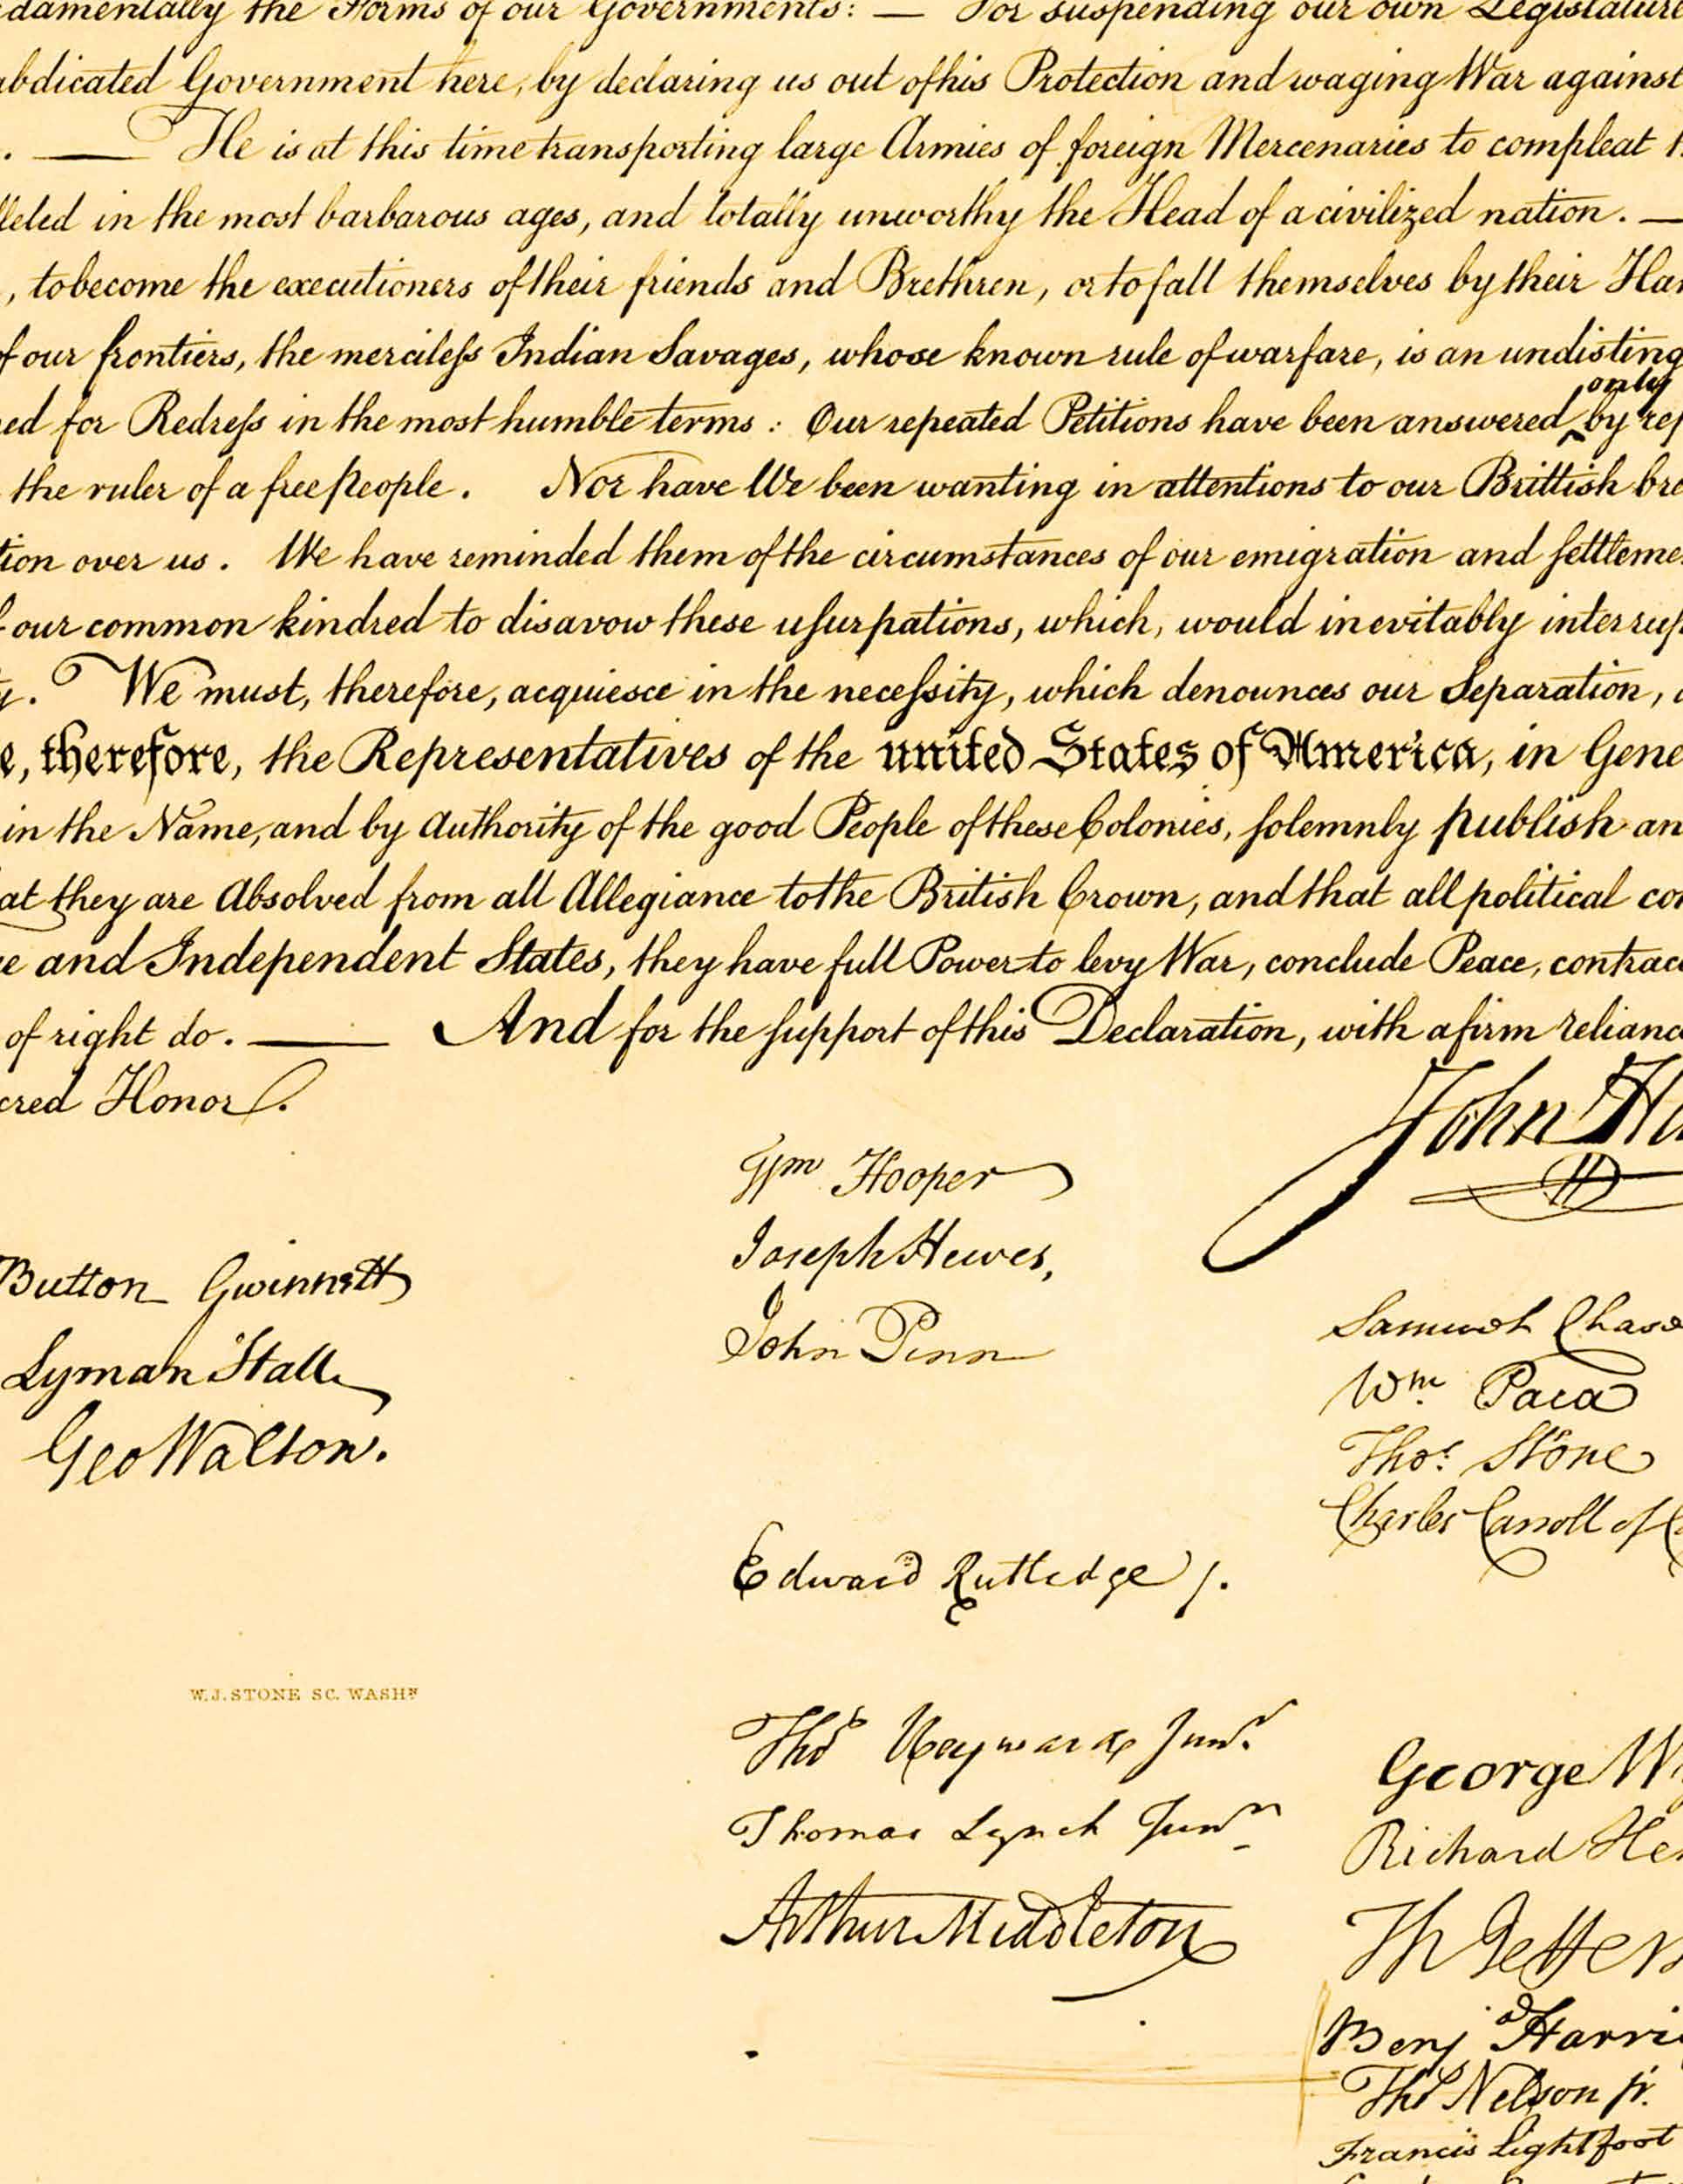 damentally the Forms of our Governments: — For suspending our own Legislature
abdicated Government here, by declaring us out of his Protection and waging War against
. — He is at this time transporting large Armies of foreign Mercenaries to compleat t
lleled in the most barbarous ages, and totally unworthy the Head of a civilized nation. —
, to become the executioners of their friends and Brethren, or to fall themselves by their Han
of our frontiers, the merciless Indian Savages, whose known rule of warfare, is an undisting
ed for Redress in the most humble terms : Our repeated Petitions have been answered only by rep
the ruler of a free people. Nor have We been wanting in attentions to our Brittish bre
tion over us. We have reminded them of the circumstances of our emigration and settleme
f our common kindred to disavow these usurpations, which, would inevitably interrup
y. We must, therefore, acquiesce in the necessity, which denounces our Separation, a
e, therefore, the Representatives of the united States of America, in Gene
in the Name, and by Authority of the good People of these Colonies, solemnly publish an
at they are Absolved from all Allegiance to the British Crown, and that all political con
e and Independent States, they have full Power to levy War, conclude Peace, contrac
of right do. — And for the support of this Declaration, with a firm relianc
cred Honor.
John Ha
Wm Hooper
Joseph Hewes,
John Penn
Button Gwinnett
Lyman Hall
Geo Walton.
Edward Rutledge /.
Thos Heyward Junr.
Thomas Lynch Junr
Arthur Middleton
W. J. STONE SC. WASHN
Samuel Chase
Wm. Paca
Thos. Stone
Charles Carroll of C
George W
Richard He
Th Jeffers
Benj Harri
Thos Nelson jr.
Francis Lightfoot